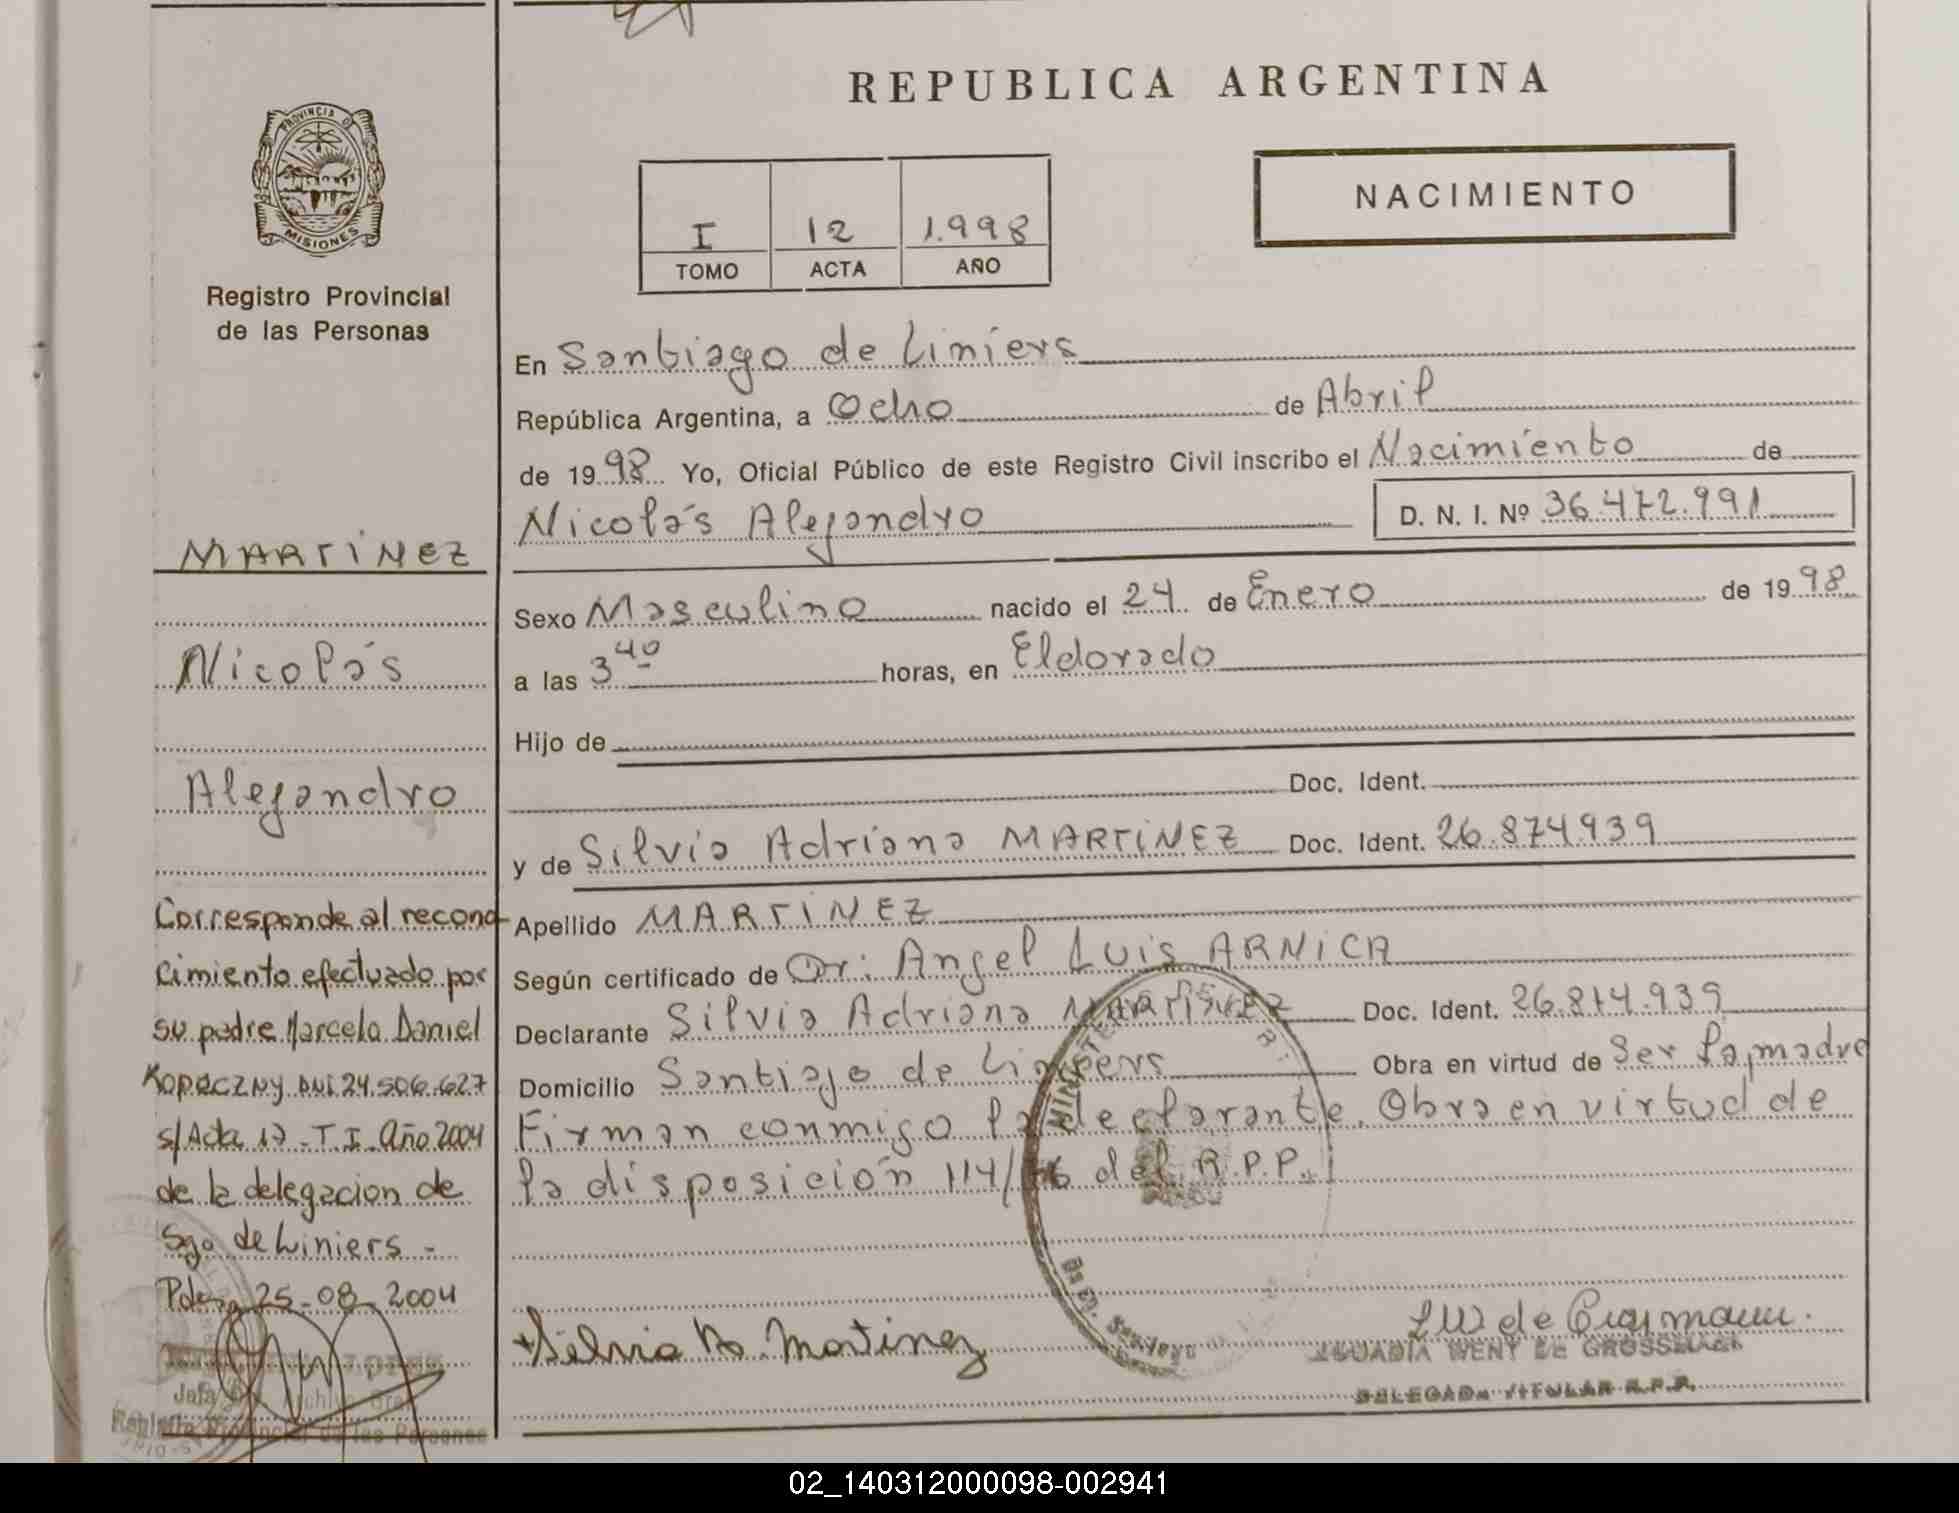 REPUBLICA ARGENTINA
PROVINCIA D
MISIONES
Registro Provincial
de las Personas
NACIMIENTO
I 12 1.998
TOMO ACTA AÑO
En Santiago de Liniers
República Argentina, a Ocho de Abril
de 1998 Yo, Oficial Público de este Registro Civil inscribo el Nacimiento de
Nicolás Alejandro D. N. I. Nº 36.472.991
Sexo Masculino nacido el 24 de Enero de 1998
a las 3 40 horas, en Eldorado
Hijo de
Doc. Ident.
y de Silvia Adriana MARTÍNEZ Doc. Ident. 26.874.939
Apellido MARTINEZ
Según certificado de Dr: Angel Luis ARNICA
Declarante Silvia Adriana MARTÍNEZ Doc. Ident. 26.874.939
Domicilio Santiago de Liniers Obra en virtud de Ser la madre
Firman conmigo la declarante. Obra en virtud de
la disposición 114/ del R.P.P.
MARTÍNEZ
Nicolás
Alejandro
Corresponde al recono-
cimiento efectuado por
su padre Marcelo Daniel
KOPACZNY DNI 24.506.627
s/Acta 17 - T. I. Año 2004
de la delegacion de
Sgo de Liniers -
Pdas, 25-08-2004
Registro Provincial de las Personas
Silvia A. Martinez
DELEGADA TITULAR R.P.P.
02_140312000098-002941